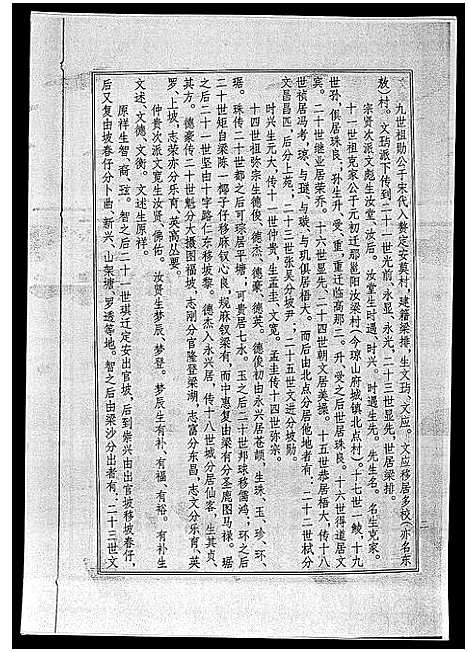 九世祖勋公于宋代入赘定安莫村，建籍梁排，生文玏、文应。文应移居多校（亦名东
敖）村。文玏派下传到二十一世光前、永显、永光、二十三世显先，世居梁排。
宗贤次派文彪生汝堂、汝后。汝堂生时遇、时兴。时遇生先。先生名。名生克家。
十一世祖克家公于元初迁那邕阳汝梁村（今琼山府城镇北点村）。十七世一鲮，十九
世孙，俱居珠良；孙生升、受、重，重迁临高那三。升、受之后世居珠良。十六世得道居文
宾。二十世继业居荣乔。十六世显先、二十四世朝文居美操。十五世恭居梧大，传十八
世祯居冯考，琼、与璇、与玑俱居梧大。而后由北点分居他地者有：二十二世栻分
文昌昌匹，后分上苑，二十三世张吴分坡尹；二十五世文进分坡勋。
时兴生元大，传十一世仲贵，生孟圭、文宽。孟圭传十四世弥宗。
十四世祖弥宗生德俊、德杰、德豪、德英。德俊初由永兴居苍颉，生珠、玉、珍、环、
琚。珠传二十世都之后可琮居平塘；可贵居七水。玉之后二十世邦球移儒鸿；环之后
二十世矩自梁陈一椰子仔移麻钗心良，规麻钗梁有，而中惠复由梁有分圣鹿图马禄。琚
之后二十一世坚由十字路仁东移坡黎。德杰入永兴居，传十八世城分居仙客，生其贞、
其方。德豪传二十世魁分大摄图福坡，志刚分官隆登梁湖，志富分东昌，志文分乐育、英
罗、上坡，志荣亦分乐育、英茑丛要。
仲贵次派文宽生汝贤、佛佑。汝贤生梦辰、梦登。梦辰生有补、有福、有裕。有补生
文述、文德、文衡。文述生原祥。
原祥生智、裔、弦。智之后二十一世琪迁定安出官坡，后到崇兴由出官坡移坡春仔，
后又复由坡春仔分卜曲新兴、山架塘、罗透等地。智之后由梁沙分出者有：二十三世文